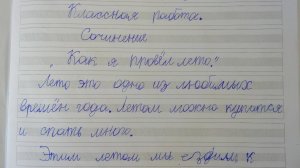 Классная работа.
Сочинение
„Как я провёл лето."
Лето это одно из любимых
времён года. Летом можно купатся
и спать много.
Этим летом мы ездили к